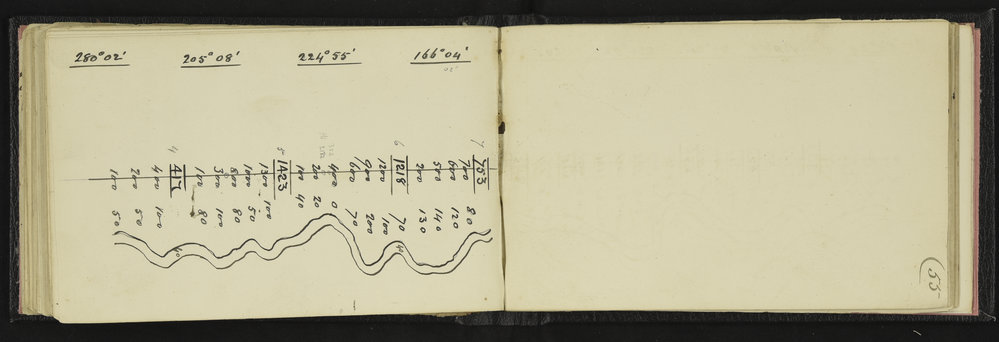 280°02'
205°08'
224°55'
166°04'
7
753
700 80
600 120
500 140
200 130
6
1218 /70
1200 100
900 200
600 70
400 0
200 20
100 40
5
1423
1300 100
1000 50
800 80
300 100
100 80
4
417
400 100
200 50
100 50
40
55